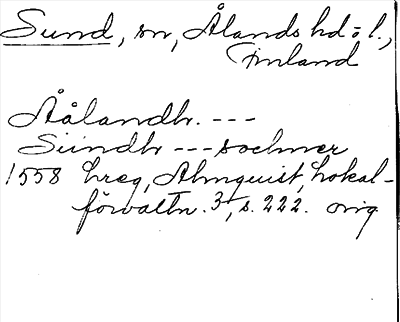 Sund, sn, Ålands hd o l.,
Finland
Åålandh. ---
Sundh --- sochner
1558 breg, Almquist, Lokal-
förvaltn. 3, s. 222. orig